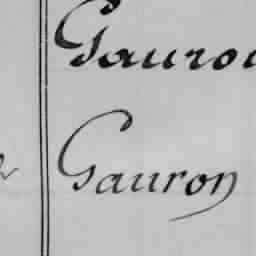 Gaurou
Gauron